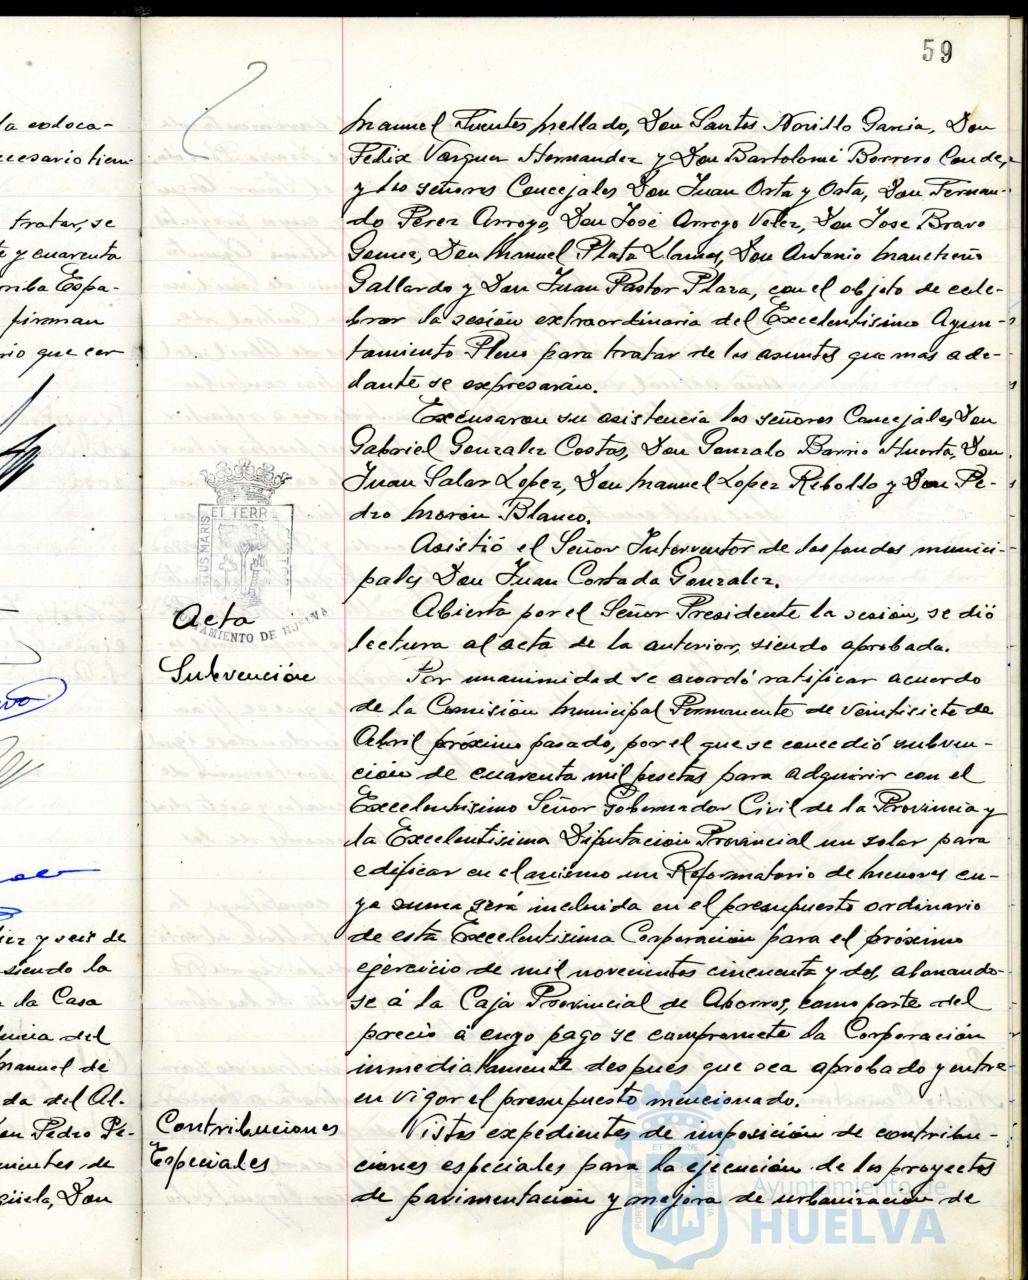 59
la coloca-
necesario tiem-
tratar, se
te y cuarenta
rriba Expa-
firman
rio que cer-
diez y seis de
siendo la
la Casa
encia del
Manuel de
da del Al-
on Pedro Pé-
nientes de
güela, Don
Manuel Fuentes Mellado, Don Santos Novillo Garcia, Don
Felix Vazquez Hernandez y Don Bartolomé Borrero Conde,
y los señores Concejales Don Juan Orta y Orta, Don Fernan-
do Perez Arroyo, Don José Arroyo Velez, Don Jose Bravo
Gomez, Don Manuel Plata Llamas, Don Antonio Mancheño
Gallardo y Don Juan Pastor Plaza, con el objeto de cele-
brar la sesión extraordinaria del Excelentisimo Ayun-
tamiento Pleno para tratar de los asuntos que mas ade-
lante se expresarán.
Excusaron su asistencia los señores Concejales Don
Gabriel Gonzalez Costas, Don Gonzalo Barrio Huerta, Don
Juan Salar Lopez, Don Manuel Lopez Rebollo y Don Pe-
dro Morón Blanco.
Asistió el Señor Interventor de los fondos munici-
pales Don Juan Cortada Gonzalez.
ET TERR
TUS MARIS
CUSTOD
AYUNTAMIENTO DE HUELVA
Acta
Abierta por el Señor Presidente la sesión, se dió
lectura al acta de la anterior, siendo aprobada.
Subvención
Por unanimidad se acordó ratificar acuerdo
de la Comisión Municipal Permanente de veintisiete de
Abril próximo pasado, por el que se concedió subven-
ción de cuarenta mil pesetas para adquirir con el
Excelentisimo Señor Gobernador Civil de la Provincia y
la Excelentisima Diputación Provincial un solar para
edificar en el mismo un Reformatorio de Menores cu-
ya suma será incluida en el presupuesto ordinario
de esta Excelentisima Corporación para el próximo
ejercicio de mil novecientos cincuenta y dos, abonando-
se á la Caja Provincial de Ahorros, como parte del
precio á cuyo pago se compromete la Corporación
inmediatamente despues que sea aprobado y entre
en vigor el presupuesto mencionado.
Contribuciones
Especiales
Vistos expedientes de imposición de contribu-
ciones especiales para la ejecución de los proyectos
de pavimentación y mejora de urbanización de
Ayuntamiento de
HUELVA